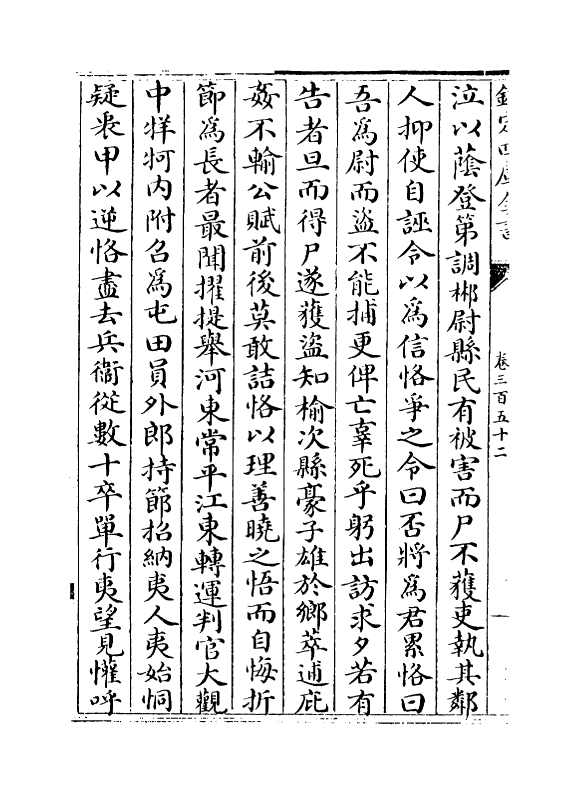 欽定四庫全書
卷三百五十二
泣以蔭登第調郴尉縣民有被害而尸不獲吏執其鄰
人抑使自誣令以為信恪爭之令曰否將為君累恪曰
吾為尉而盜不能捕更俾亡辜死乎躬出訪求夕若有
告者旦而得尸遂獲盜知榆次縣豪子雄於鄉萃逋庇
姦不輸公賦前後莫敢詰恪以理善曉之悟而自悔折
節為長者最聞擢提舉河東常平江東轉運判官大觀
中牂牁內附召為屯田員外郎持節招納夷人夷始恫
疑裝甲以逆恪盡去兵衞從數十卒單行夷望見懽呼